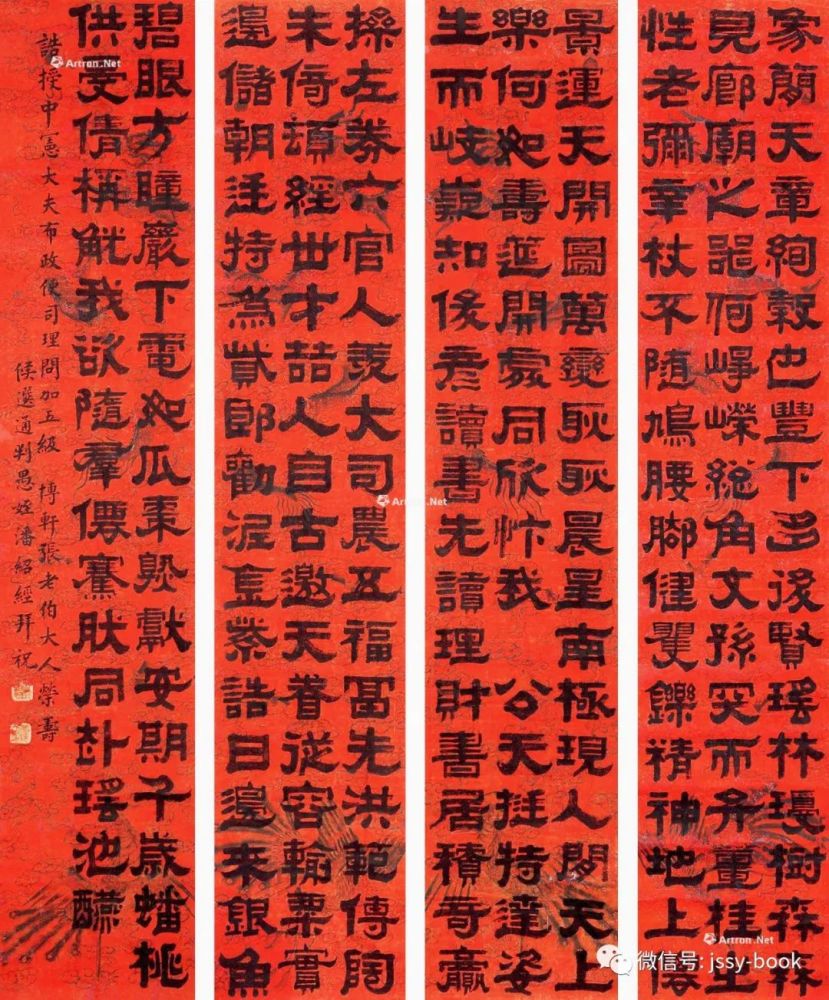 象簡天章絢穀也豐下多後賢瑤林瓊樹森森
見廊廟之器何崢嶸總角文孫突而弁薑桂生
性老彌辛杖不隨鳩腰腳健矍鑠精神地上僊
景運天開圖萬變耿耿晨星南極現人間天上
樂何如壽筵開處同欣忭我 公天挺特達姿
生而岐嶷知後彥讀書先讀理財書居積奇贏
操左券六官人羨大司農五福冨先洪範傳陶
朱倚頓經世才喆人自古邀天眷從容輸粟實
邊儲朝廷特為貲郎勸泥金紫誥日邊來銀魚
碧眼方瞳巖下電如瓜棗熟獻安期千歲蟠桃
供曼倩稱觥我欲隨羣僊騫肰同赴瑤池醼
誥授中憲大夫布政使司理問加五級 博軒張老伯大人榮壽
候選通判愚姪潘紹經拜祝
Artron.Net
Artron.Net
Artron.Net
微信号: jssy-book